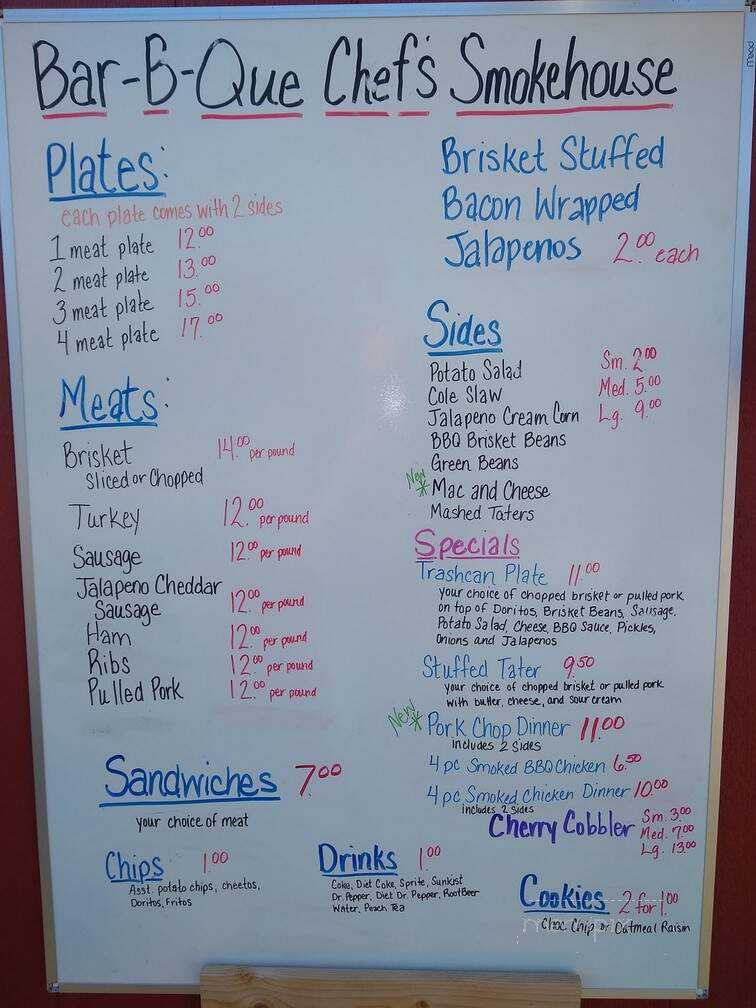 Mead
Bar-B-Que Chef's Smokehouse
Plates:
each plate comes with 2 sides
1 meat plate 12.00
2 meat plate 13.00
3 meat plate 15.00
4 meat plate 17.00
Meats:
Brisket 14.00 per pound
Sliced or Chopped
Turkey 12.00 per pound
Sausage 12.00 per pound
Jalapeno Cheddar
Sausage 12.00 per pound
Ham 12.00 per pound
Ribs 12.00 per pound
Pulled Pork 12.00 per pound
Brisket Stuffed
Bacon Wrapped
Jalapenos 2.00 each
Sides
Potato Salad Sm. 2.00
Cole Slaw Med. 5.00
Jalapeno Cream Corn Lg. 9.00
BBQ Brisket Beans
Green Beans
New * Mac and Cheese
Mashed Taters
Specials
Trashcan Plate 11.00
your choice of chopped brisket or pulled pork
on top of Doritos, Brisket Beans, Sausage,
Potato Salad, Cheese, BBQ Sauce, Pickles,
Onions and Jalapenos
Stuffed Tater 9.50
your choice of chopped brisket or pulled pork
with butter, cheese, and sour cream
New * Pork Chop Dinner 11.00
includes 2 Sides
4 pc Smoked BBQ Chicken 6.50
4 pc Smoked Chicken Dinner 10.00
includes 2 sides
Cherry Cobbler Sm. 3.00
Med. 7.00
Lg. 13.00
Sandwiches 7.00
your choice of meat
Chips 1.00
Asst. potato chips, cheetos,
Doritos, Fritos
Drinks 1.00
Coke, Diet Coke, Sprite, Sunkist
Dr. Pepper, Diet Dr. Pepper, RootBeer
Water, Peach Tea
Cookies 2 for 1.00
Choc Chip or Oatmeal Raisin